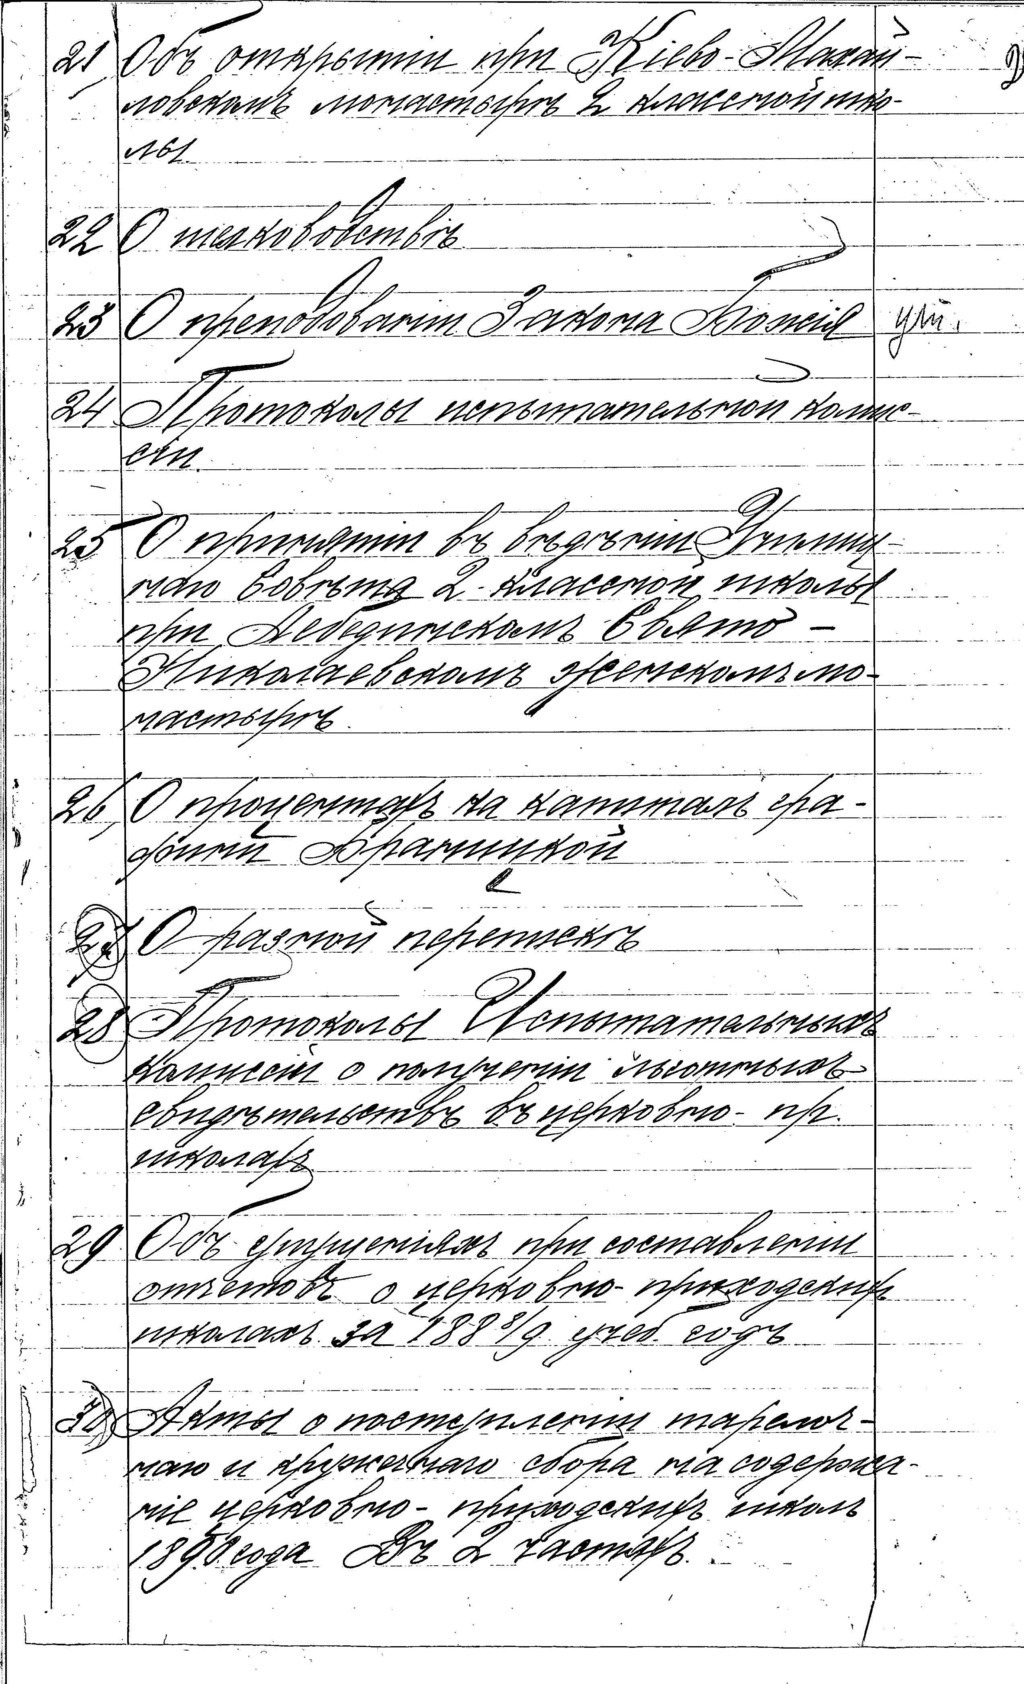 21 Объ открытіи при Кіево-Михай-
ловскомъ монастырѣ 2 классной шко-
лы
22 О шелководствѣ
23 О преподованіи Закона Божія
24 Протоколы испытательной комис-
сіи.
25 О принятіи въ вѣдѣніи Училищ-
наго Совѣта 2-классной школы
при Лебединскомъ Свято-
Николаевскомъ женскомъ мо-
настырѣ.
26 О процентахъ на капиталъ гра-
фини Браницкой
27 О разной перепискѣ
28 Протоколы Испытательныхъ
Комиссіи о полученіи льготныхъ
свидѣтельствъ въ церковно-пр.
школахъ
29 Объ упущеніяхъ при составленіи
отчетовъ о церковно-приходскихъ
школахъ за 1888/9 учеб. годъ
30 Акты о поступленіи тарелоч-
наго и кружечнаго сбора на содержа-
ніе церковно-приходскихъ школъ
1890 года Въ 2 частяхъ.